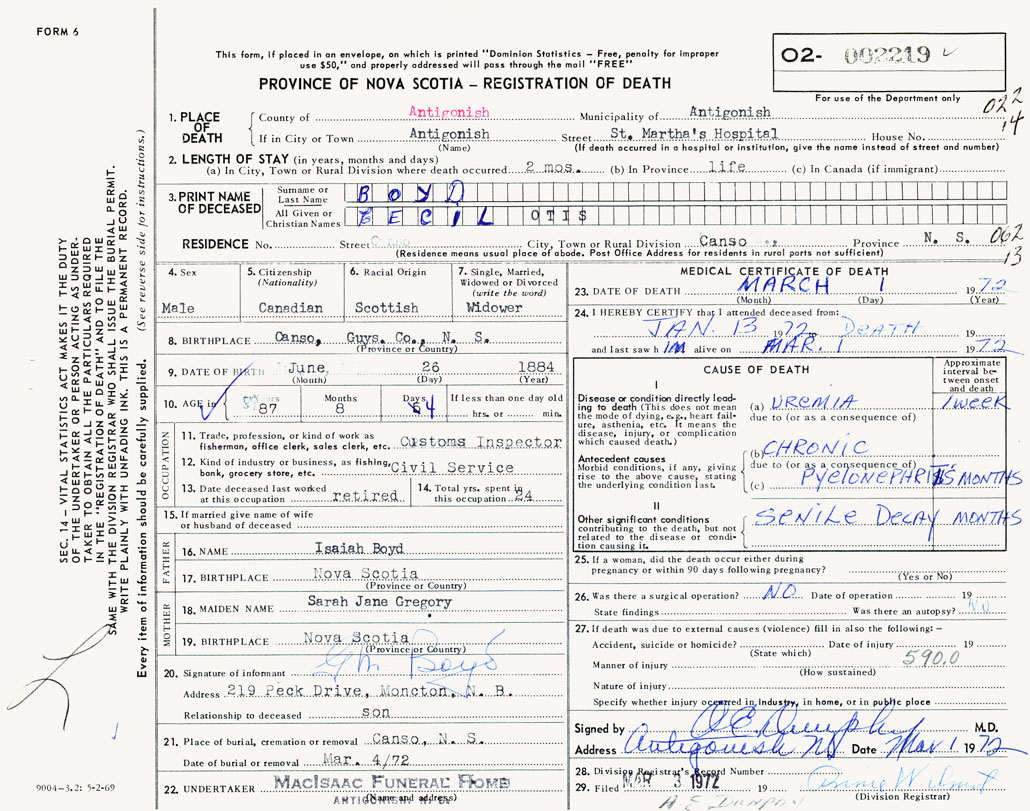 FORM 6
This form, if placed in an envelope, on which is printed "Dominion Statistics – Free, penalty for improper
use $50," and properly addressed will pass through the mail "FREE"
PROVINCE OF NOVA SCOTIA – REGISTRATION OF DEATH
O2- 002219
For use of the Department only
022
14
1. PLACE OF DEATH County of Antigonish Municipality of Antigonish
If in City or Town Antigonish Street St. Martha's Hospital House No.
(Name) (If death occurred in a hospital or institution, give the name instead of street and number)
2. LENGTH OF STAY (in years, months and days)
(a) In City, Town or Rural Division where death occurred 2 mos. (b) In Province life (c) In Canada (if immigrant)
3. PRINT NAME OF DECEASED Surname or Last Name BOYD
All Given or Christian Names CECIL OTIS
RESIDENCE No. Street City, Town or Rural Division Canso Province N. S. 062
13
(Residence means usual place of abode. Post Office Address for residents in rural parts not sufficient)
4. Sex 5. Citizenship (Nationality) 6. Racial Origin 7. Single, Married, Widowed or Divorced (write the word)
Male Canadian Scottish Widower
8. BIRTHPLACE Canso, Guys. Co., N. S.
(Province or Country)
9. DATE OF BIRTH June, 26 1884
(Month) (Day) (Year)
10. AGE in Years Months Days If less than one day old
87 8 4 hrs. or min.
OCCUPATION
11. Trade, profession, or kind of work as
fisherman, office clerk, sales clerk, etc. Customs Inspector
12. Kind of industry or business, as fishing,
bank, grocery store, etc. Civil Service
13. Date deceased last worked at this occupation retired
14. Total yrs. spent in this occupation 24
15. If married give name of wife
or husband of deceased
FATHER
16. NAME Isaiah Boyd
17. BIRTHPLACE Nova Scotia
(Province or Country)
MOTHER
18. MAIDEN NAME Sarah Jane Gregory
19. BIRTHPLACE Nova Scotia
(Province or Country)
20. Signature of informant Boyd
Address 219 Peck Drive, Moncton, N. B.
Relationship to deceased son
21. Place of burial, cremation or removal Canso, N. S.
Date of burial or removal Mar. 4/72
22. UNDERTAKER MacIsaac Funeral Home
(Name and address)
ANTIGONISH
MEDICAL CERTIFICATE OF DEATH
23. DATE OF DEATH MARCH 1 1972
(Month) (Day) (Year)
24. I HEREBY CERTIFY that I attended deceased from:
JAN. 13 1972 DEATH 19
and last saw him alive on MAR. 1 1972
CAUSE OF DEATH
Approximate interval between onset and death
I
Disease or condition directly leading
to death (This does not mean
the mode of dying, e.g., heart failure,
asthenia, etc. It means the
disease, injury, or complication
which caused death.)
(a) UREMIA 1 week
due to (or as a consequence of)
Antecedent causes
Morbid conditions, if any, giving
rise to the above cause, stating
the underlying condition last.
(b) CHRONIC
due to (or as a consequence of)
(c) PYELONEPHRITIS MONTHS
II
Other significant conditions
contributing to the death, but not
related to the disease or condition
causing it.
SENILE DECAY MONTHS
25. If a woman, did the death occur either during
pregnancy or within 90 days following pregnancy?
(Yes or No)
26. Was there a surgical operation? NO Date of operation 19
State findings Was there an autopsy? NO
27. If death was due to external causes (violence) fill in also the following: –
Accident, suicide or homicide? Date of injury 19
(State which)
590.0
Manner of injury
(How sustained)
Nature of injury
Specify whether injury occurred in industry, in home, or in public place
Signed by M.D.
Address Antigonish NS Date Mar 1 1972
28. Division Registrar's Record Number
29. Filed MAR 3 1972 19
(Division Registrar)
SEC. 14 – VITAL STATISTICS ACT MAKES IT THE DUTY
OF THE UNDERTAKER OR PERSON ACTING AS UNDERTAKER
TO OBTAIN ALL THE PARTICULARS REQUIRED
IN THE "REGISTRATION OF DEATH" AND TO FILE THE
SAME WITH THE DIVISION REGISTRAR WHO SHALL ISSUE THE BURIAL PERMIT.
WRITE PLAINLY WITH UNFADING INK. THIS IS A PERMANENT RECORD.
Every item of information should be carefully supplied. (See reverse side for instructions.)
9004–3.2: 5-2-69